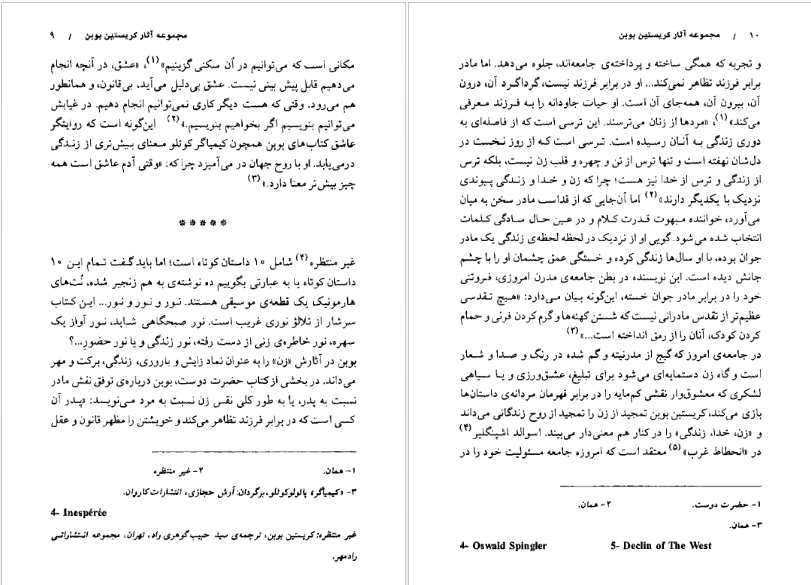 ۱۰ / مجموعه آثار کریستین بوبن
و تجربه که همگی ساخته و پرداخته‌ی جامعه‌اند، جلوه می‌دهد. اما مادر
برابر فرزند تظاهر نمی‌کند... او در برابر فرزند نیست، گرداگرد آن، درون
آن، بیرون آن، همه‌جای آن است. او حیات جاودانه را به فرزند معرفی
می‌کند» (۱)، «مردها از زنان می‌ترسند. این ترسی است که از فاصله‌ای به
دوری زندگی به آنان رسیده است. ترسی است که از روز نخست در
دل‌شان نهفته است و تنها ترس از تن و چهره و قلب زن نیست، بلکه ترس
از زندگی و ترس از خدا نیز هست؛ چرا که زن و خدا و زندگی پیوندی
نزدیک با یکدیگر دارند» (۲) اما آن‌جایی که از قداست مادر سخن به میان
می‌آورد، خواننده مبهوت قدرت کلام و در عین حال سادگی کلمات
انتخاب شده می‌شود. گویی او از نزدیک در لحظه لحظه‌ی زندگی یک مادر
جوان بوده، با او سال‌ها زندگی کرده و خستگی عمق چشمان او را با چشم
جانش دیده است. این نویسنده در بطن جامعه‌ی مدرن امروزی، فروتنی
خود را در برابر مادر جوان خسته، این‌گونه بیان می‌دارد: «هیچ تقدسی
عظیم‌تر از تقدس مادرانی نیست که شستن کهنه‌ها و گرم کردن فرنی و حمام
کردن کودک، آنان را از رمق انداخته است...» (۳)
در جامعه‌ی امروز که گیج از مدرنیته و گم شده در رنگ و صدا و شعار
است و گاه زن دستمایه‌ای می‌شود برای تبلیغ، عشق‌ورزی و یا سیاهی
لشکری که معشوق‌وار نقشی کم‌مایه را در برابر قهرمان مردانه‌ی داستان‌ها
بازی می‌کند، کریستین بوبن تمجید از زن را تمجید از روح زندگانی می‌داند
و «زن، خدا، زندگی» را در کنار هم معنی‌دار می‌بیند. اسوالد اشپنگلیر (۴)
در «انحطاط غرب» (۵) معتقد است که امروزه جامعه مسئولیت خود را در
۱- حضرت دوست. ۲- همان.
۳- همان.
4- Oswald Spingler 5- Declin of The West
مجموعه آثار کریستین بوبن / ۹
مکانی است که می‌توانیم در آن سکنی گزینیم» (۱)، «عشق، در آنچه انجام
می‌دهیم قابل پیش بینی نیست. عشق بی‌دلیل می‌آید، بی‌قانون، و همانطور
هم می‌رود. وقتی که هست دیگر کاری نمی‌توانیم انجام دهیم. در غیابش
می‌توانیم بنویسیم اگر بخواهیم بنویسیم.» (۲) این‌گونه است که روایتگر
عاشق کتاب‌های بوبن همچون کیمیاگر کوئلو معنای بیش‌تری از زندگی
درمی‌یابد. او با روح جهان در می‌آمیزد چرا که: «وقتی آدم عاشق است همه
چیز بیش‌تر معنا دارد.» (۳)
*****
غیر منتظره (۴) شامل ۱۰ داستان کوتاه است؛ اما باید گفت تمام این ۱۰
داستان کوتاه یا به عبارتی بگوییم ده نوشته‌ی به هم زنجیر شده، نُت‌های
هارمونیک یک قطعه‌ی موسیقی هستند. نور و نور و نور... این کتاب
سرشار از تلألؤ نوری غریب است. نور صبحگاهی شاید، نور آواز یک
سهره، نور خاطره‌ی زنی از دست رفته، نور زندگی و یا نور حضور...؟
بوبن در آثارش «زن» را به عنوان نماد زایش و باروری، زندگی، برکت و مهر
می‌داند. در بخشی از کتاب حضرت دوست، بوبن درباره‌ی توفق نقش مادر
نسبت به پدر، یا به طور کلی نقس زن نسبت به مرد می‌نویسد: «پدر آن
کسی است که در برابر فرزند تظاهر می‌کند و خویشتن را مظهر قانون و عقل
۱- همان. ۲- غیر منتظره
۳- «کیمیاگر» پائولوکوئلو، برگردان: آرش حجازی، انتشارات کاروان.
4- Inespérée
غیر منتظره: کریستین بوبن، ترجمه‌ی سید حبیب گوهری راد، تهران، مجموعه انتشاراتی
رادمهر.